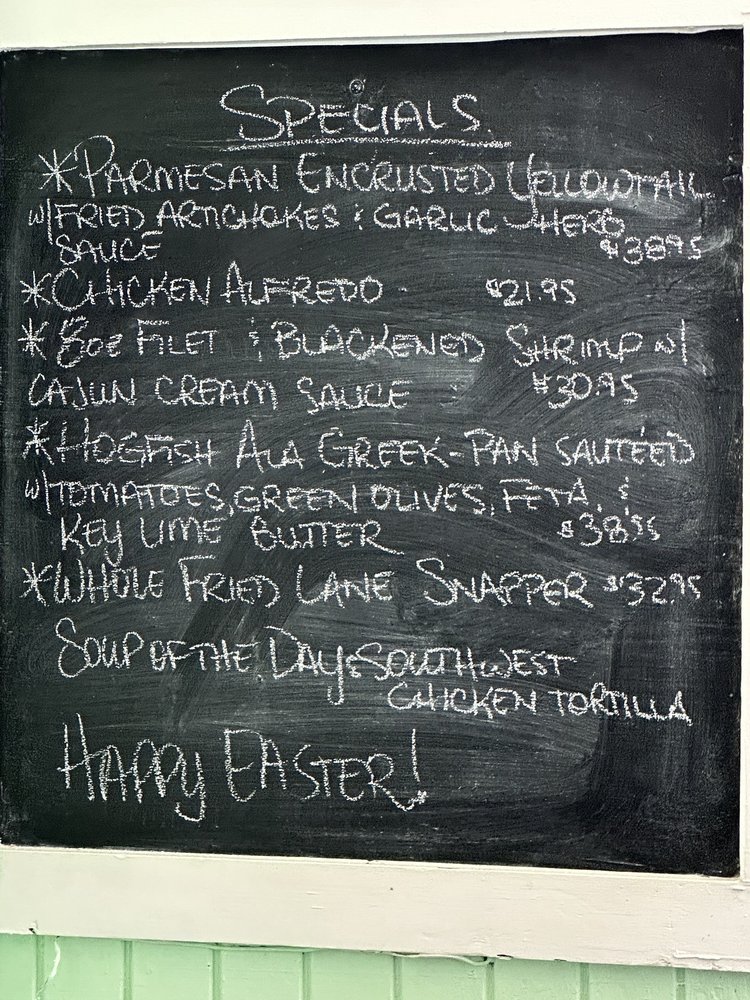 SPECIALS
*PARMESAN ENCRUSTED YELLOWTAIL
w/FRIED ARTICHOKES & GARLIC-HERB
SAUCE $38.95
*CHICKEN ALFREDO - $21.95
*8oz FILET & BLACKENED SHRIMP w/
CAJUN CREAM SAUCE - $30.95
*HOGFISH ALA GREEK-PAN SAUTÉED
w/TOMATOES, GREEN OLIVES, FETA, &
KEY LIME BUTTER $38.95
*WHOLE FRIED LANE SNAPPER $32.95
SOUP OF THE DAY: SOUTHWEST
CHICKEN TORTILLA
HAPPY EASTER!